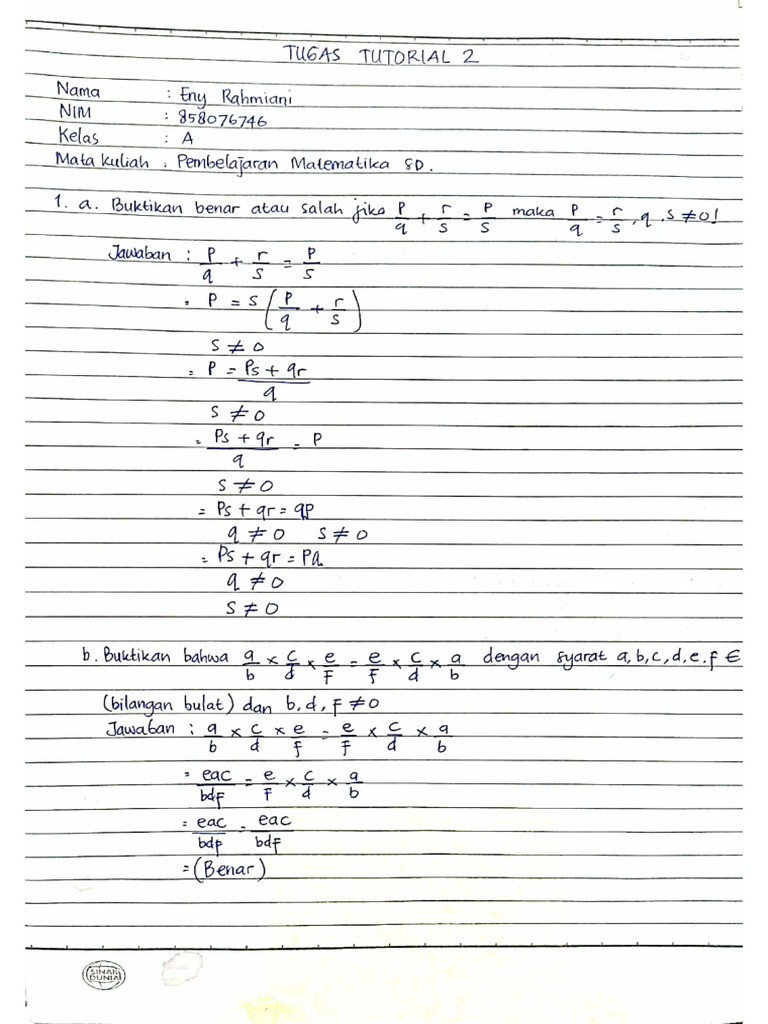 TUGAS TUTORIAL 2
Nama : Eny Rahmiani
NIM : 858076746
Kelas : A
Mata kuliah : Pembelajaran Matematika SD.
1. a. Buktikan benar atau salah jika p/q + r/s = p/s maka p/q = r/s, q, s ≠ 0!
Jawaban : p/q + r/s = p/s
= p = s (p/q + r/s)
s ≠ 0
= p = ps + qr / q
s ≠ 0
= ps + qr / q = p
s ≠ 0
= ps + qr = qp
q ≠ 0 s ≠ 0
= ps + qr = pq
q ≠ 0
s ≠ 0
b. Buktikan bahwa a/b × c/d × e/f = e/f × c/d × a/b dengan syarat a, b, c, d, e, f ∈
(bilangan bulat) dan b, d, f ≠ 0
Jawaban : a/b × c/d × e/f = e/f × c/d × a/b
= eac/bdf = e/f × c/d × a/b
= eac/bdf = eac/bdf
= (Benar)
SINAR DUNIA